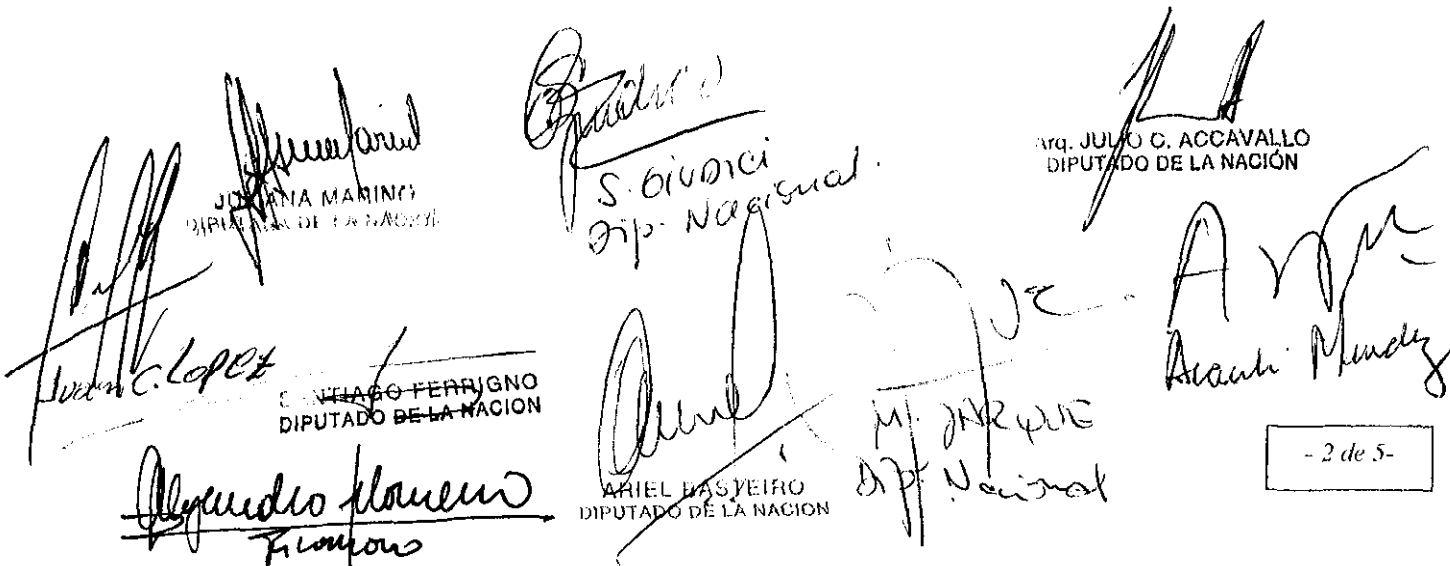 JULIANA MARINO
DIPUTADA DE LA NACION
S. GIUDICI
Dip. Nacional.
Arq. JULIO C. ACCAVALLO
DIPUTADO DE LA NACIÓN
Juan C. LOPEZ
SANTIAGO FERRIGNO
DIPUTADO DE LA NACION
Araceli Mendez
ARIEL BASTEIRO
DIPUTADO DE LA NACION
M. JARQUE
Dip. Nacional
- 2 de 5-
Alejandro